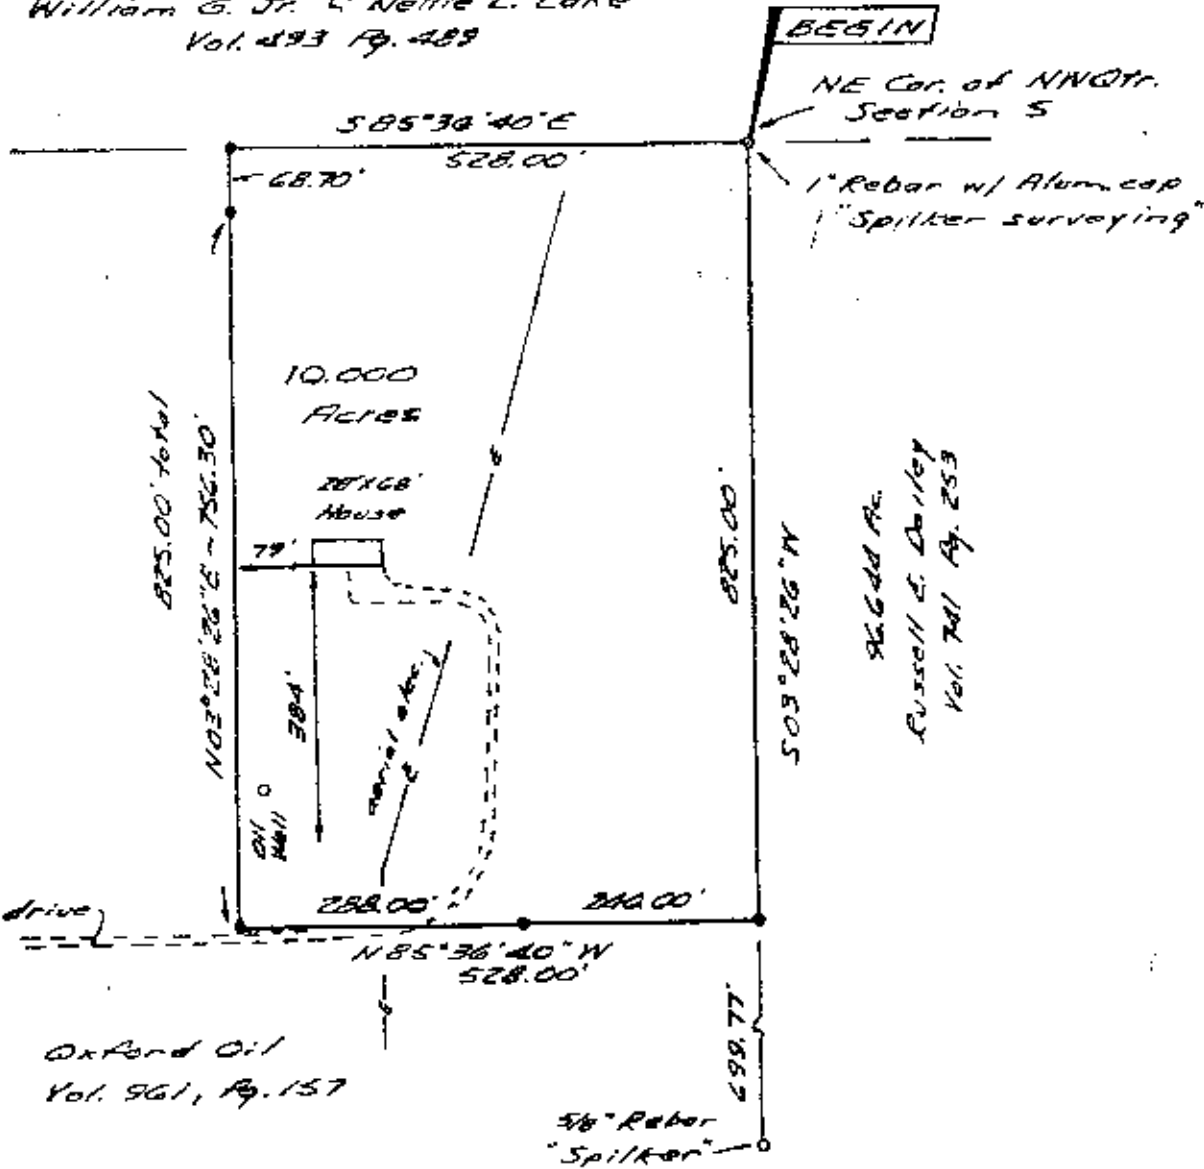 William G. Jr. & Nellie L. Lake
Vol. 493 Pg. 489
BEGIN
NE Cor. of NWQtr.
Section 5
S 85°36'40" E
528.00'
68.70'
1" Rebar w/ Alum. cap
"Spilker surveying"
10.000
Acres
28'x68'
House
79'
825.00' total
N03°28'26"E ~ 756.30'
384'
aerial elec.
E
E
825.00'
S03°28'26"W
96.644 Ac.
Russell E. Dailey
Vol. 741 Pg. 253
Oil
Well
drive
288.00'
240.00'
N 85°36'40" W
528.00'
E
699.77'
Oxford Oil
Vol. 961, Pg. 157
5/8" Rebar
"Spilker"